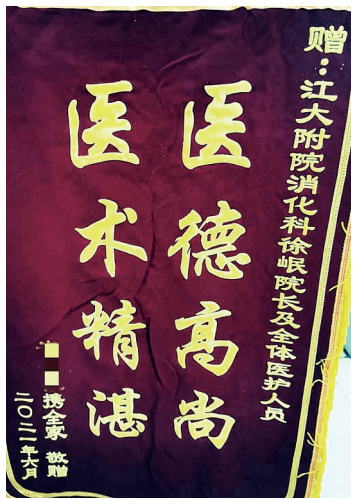 赠：江大附院消化科徐岷院长及全体医护人员
医德高尚
医术精湛
携全家 敬赠
二〇二一年六月